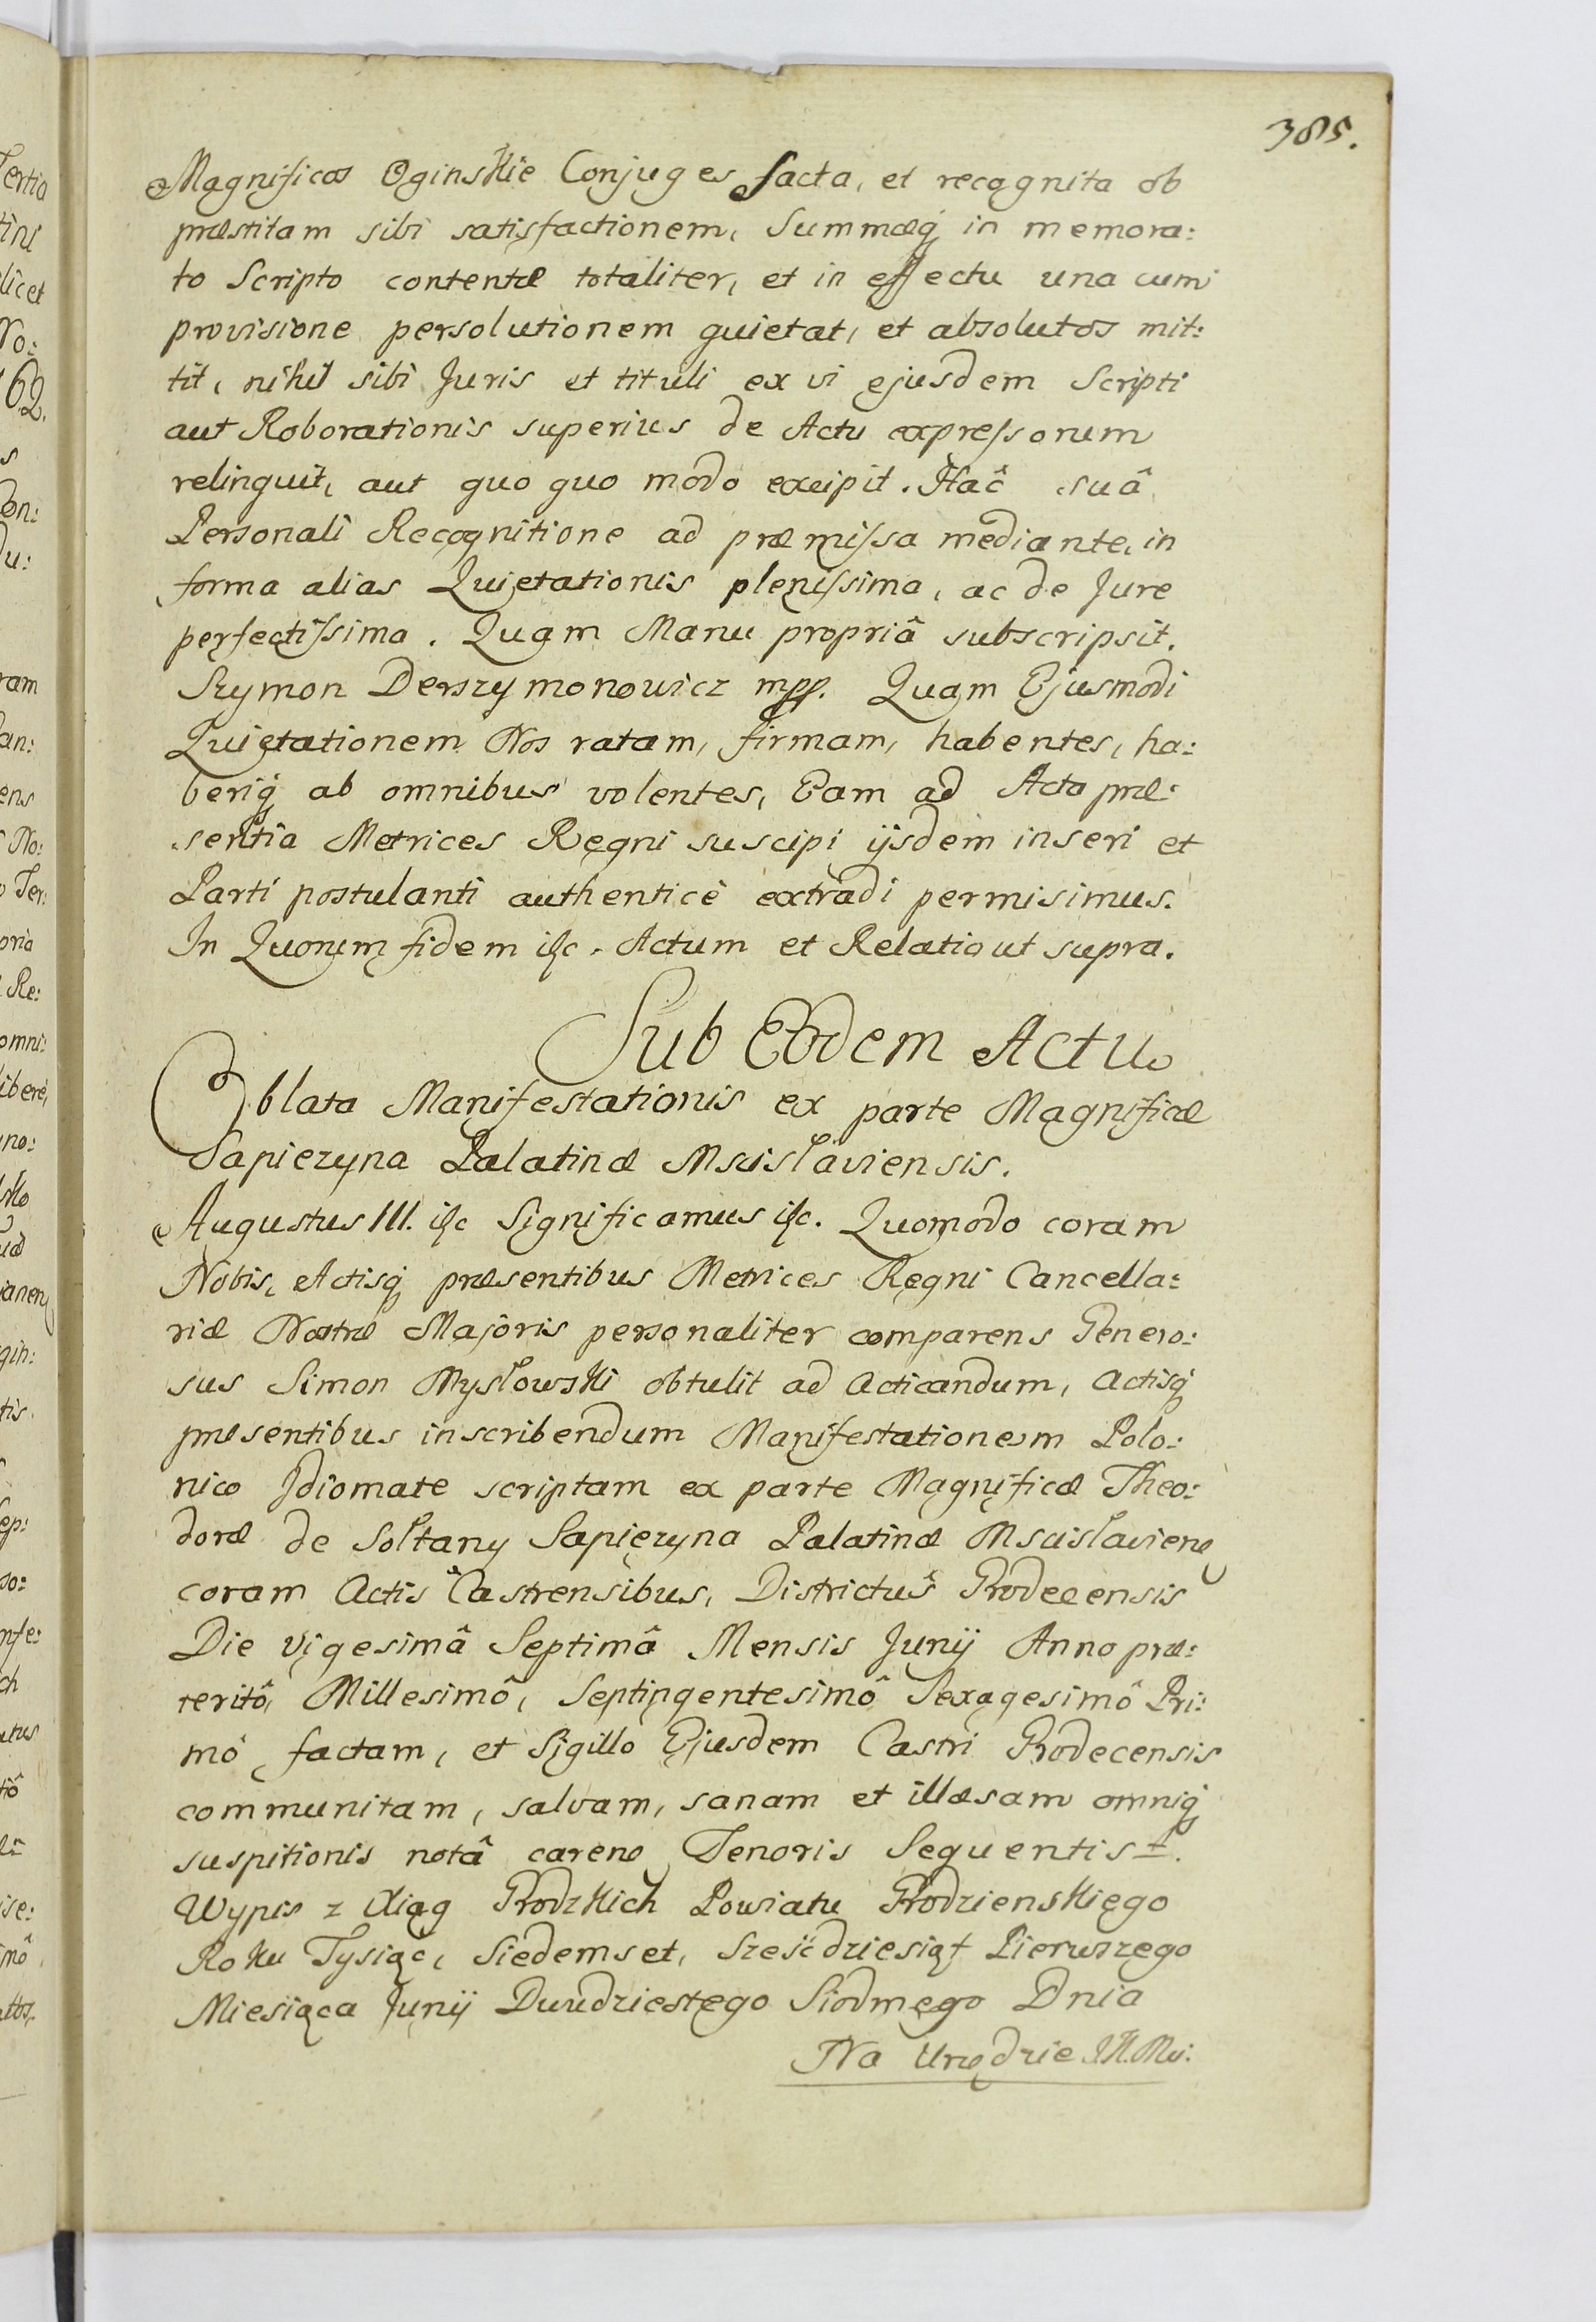 385.
Magnificos Oginskie Conjuges facta, et recognita ob
præstitam sibi satisfactionem, Summæq́ in memora:
to Scripto contentæ totaliter, et in effectu una cum
provisione persolutionem quietat, et absolutos mit:
tit, nihil sibi Juris et tituli ex vi ejusdem Scripti
aut Roborationis superius de Actu expressorum
relinquit, aut quo quo modo excipit. Hac̃ suâ
Personali Recognitione ad præmissa mediante, in
forma alias Quietationis plenissima, ac de Jure
perfectissima. Quam Manu propriâ subscripsit.
Szymon Derszymonowicz mpp. Quam Ejusmodi
Quietationem Nos ratam, firmam, habentes, ha:
beriq́ ab omnibus volentes, Eam ad Acta præ:
sentia Metrices Regni suscipi ijsdem inseri et
Parti postulanti authenticè extradi permisimus.
In Quorum fidem etc. Actum et Relatio ut supra.
Sub Eodem Actu
Oblata Manifestationis ex parte Magnificæ
Sapiezyna Palatinæ Mscislaviensis.
Augustus III. etc Significamus etc. Quomodo coram
Nobis, Actisq́ præsentibus Metrices Regni Cancella:
riæ Nostræ Majoris personaliter comparens Genero:
sus Simon Mysłowski obtulit ad Acticandum, Actisq́
præsentibus inscribendum Manifestationem Polo:
nico Idiomate scriptam ex parte Magnificæ Theo:
doræ de Sołtany Sapiezyna Palatinæ Mscislavien
coram Actis Castrensibus, Districtus Grodecensis
Die vigesimâ Septimâ Mensis Junij Anno præ:
teritô, Millesimô, Septingentesimô Sexagesimô Pri:
mô factam, et Sigillo Ejusdem Castri Grodecensis
communitam, salvam, sanam et illæsam omniq́
suspitionis notâ caren Tenoris Sequentis.
Wypis z Xiąg Grodzkich Powiatu Grodzienskięgo
Roku Tysiąc, Siedemset, Sześćdziesiąt Pierwszego
Miesiąca Junij Dwudziestęgo Siodmęgo Dnia
Na Urzędzie JK. Mci: